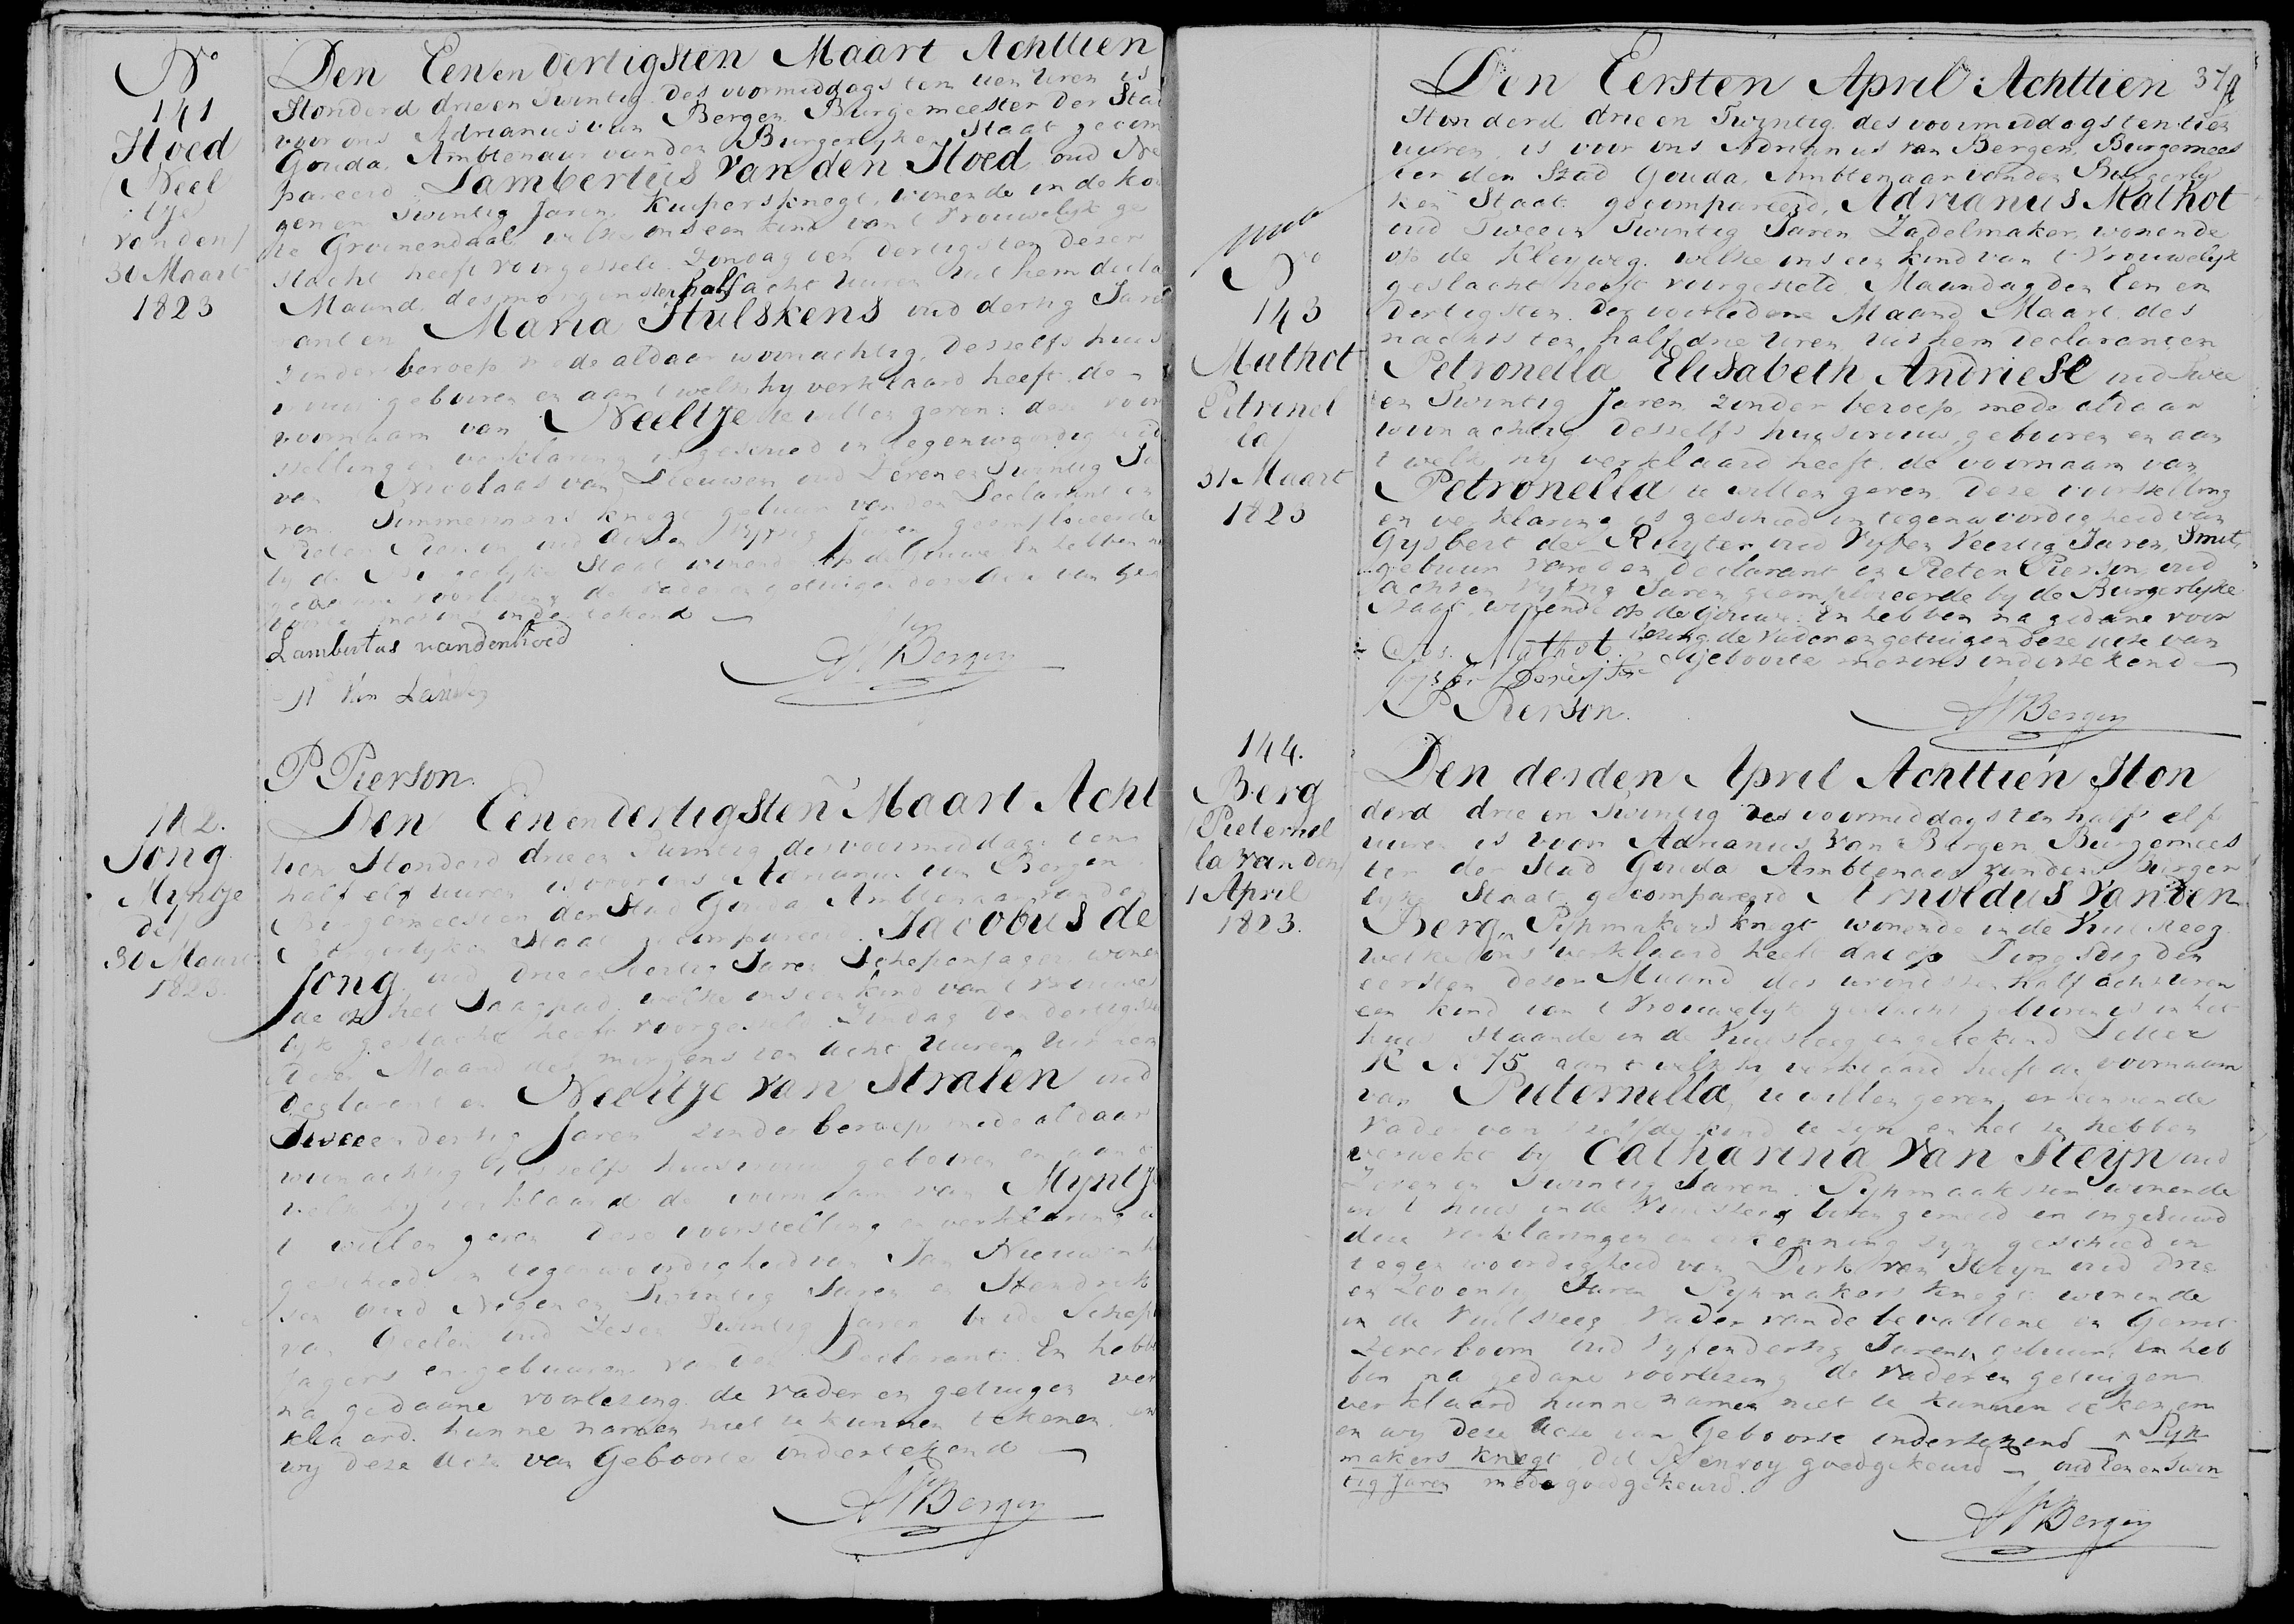 No
141
Hoed
Neel
tje
van den
30 Maart
1823
Den Een en dertigsten Maart Achttien
Honderd drie en Twintig des voormiddags ten tien Uren is
voor ons Adrianus van Bergen Burgemeester der Stad
Gouda, Ambtenaar van den Burgerlyken Staat gecom
pareerd Lambertus van den Hoed oud Ne
gen en Twintig Jaren, Kuipersknegt, wonende in de Kor
te Groenendaal welke ons een kind van t Vrouwelyk ge
slacht heeft voorgesteld Zondag den dertigsten dezer
Maand des morgens ten half acht Uuren uit hem decla
rant en Maria Hulskens oud dertig Jaren
zonder beroep mede aldaar woonachtig, desselfs huis
vrouw geboren en aan t welk hy verklaard heeft de
voornaam van Neeltje te willen geven: deze voor
stelling en verklaring is geschied in tegenwoordigheid
van Nicolaas van Leeuwen oud Zeven en Twintig Ja
ren Timmermans knegt gebuur van den Declarant en
Pieter Pierson oud acht en Vyftig Jaren geemploieerde
by de Burgerlyke Staat wonende op de Gouwe En hebben na
gedaane voorlezing de Vader en getuigen deze Acte van Ge
boorte met ons ondertekend
Lambertus vandenhoed
N Van
AVBergen
P Pierson.
142.
Jong
Myntje
de
30 Maart
1823.
Den Een en dertigsten Maart Acht
tien Honderd drie en Twintig des voormiddags ten
half elf uuren is voor ons Adrianus van Bergen
Burgemeester der Stad Gouda Ambtenaar van den
Burgerlyken Staat gecompareerd Jacobus de
Jong oud drie en dertig Jaren Schepenjager wonen
de op het Jaagpad welke ons een kind van t Vrouwe
lyk geslacht heeft voorgesteld Zondag den dertigsten
dezer Maand des morgens ten acht Uuren Uit hem
Declarant en Neeltje van Stralen oud
Twee en dertig Jaren zonder beroep mede aldaar
woonachtig desselfs huisvrouw geboren en aan t
welk hy verklaard de voornaam van Myntje
te willen geven deze voorstelling en verklaring is
geschied in tegenwoordigheid van Jan Nieuwenh
sen oud Negen en Twintig Jaren en Hendrik
van Geelen oud Zes en Twintig Jaren beide Schepe
jagers en gebuuren van den Declarant. En hebben
na gedaane voorlezing de vader en getuigen ver
klaard hunne namen niet te kunnen tekenen en
wy deze Acte van Geboorte ondertekend
AVBergen
37
No
143
Mathot
Petronel
la
31 Maart
1823
Den Eersten April Achttien
Honderd drie en Twintig des voormiddags ten tien
uuren, is voor ons Adrianus van Bergen, Burgemees
ter der Stad Gouda, Ambtenaar van den Burgerly
ken Staat gecompareerd, Adrianus Mathot
oud Twee en Twintig Jaren Zadelmaker, wonende
op de Kleyweg welke ons een kind van t Vrouwelyk
geslacht heeft voorgesteld Maandag den Een en
dertigsten der voorledene Maand Maart des
nachts ten half drie Uren uit hem declarant en
Petronella Elisabeth Andriese oud Twee
en Twintig Jaren zonder beroep, mede aldaar
woonachtig desselfs huisvrouw geboren en aan
t welk hy verklaard heeft de voornaam van
Petronella te willen geven Deze voorstelling
en verklaring is geschied in tegenwoordigheid van
Gysbert de Ruyter oud Vyf en Veertig Jaren, Smit,
gebuur van den Declarant en Pieter Pierson oud
acht en Vyftig Jaren geemploieerde by de Burgerlyke
Staat, wonende op de Gouwe. En hebben na gedane voor
lezing de Vader en getuigen deze acte van
Geboorte met ons ondertekend
As. Mathot
P Pierson.
AVBergen
144.
Berg
Pieternel
la van den
1 April
1823.
Den derden April Achttien Hon
derd drie en Twintig des voormiddags ten half elf
uuren is voor Adrianus van Bergen Burgemees
ter der Stad Gouda Ambtenaar van den Burger
lyke Staat gecompareerd Arnoldus van den
Berg, Pypmakers knegt wonende in de Vuilsteeg
welke ons verklaard heeft dat op Dingsdag den
eersten dezer Maand des avonds ten half acht uren
een kind van t Vrouwelyk geslacht geboren is in het
huis staande in de Vuilsteeg en getekend Letter
K No 75 aan t welk hy verklaard heeft de voornaam
van Pieternella te willen geven, erkennende
Vader van hetzelfde kind te zyn en het te hebben
verwekt by Catharina van Steijn oud
Zeven en Twintig Jaren Pypmaakster wonende
in t huis in de Vuilsteeg boven gemeld en ongehuwd
deze verklaringen en erkenning zyn geschied in
tegenwoordigheid van Dirk van Steijn oud drie
en Zeventig Jaren Pypmakers knegt wonende
in de Vuilsteeg Vader van de bevallene en Gerrit
Zevenboom oud Vyf en dertig Jaren gebuur, En heb
ben na gedane voorlezing de Vader en getuigen
verklaard hunne namen niet te kunnen tekenen
en wy deze Acte van Geboorte ondertekend Pyp
makers knegt dit Renvoy goedgekeurd oud Een en Twin
tig Jaren mede goedgekeurd.
AVBergen